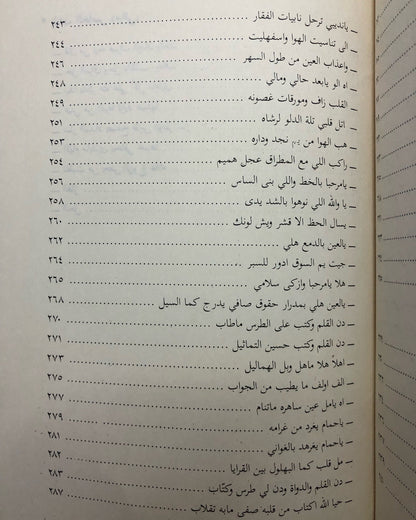 ـ ياندیبي ترحل نابيات الفقار ٢٤٣
ـ الى تناسيت الهوا واسفهليت ٢٤٤
ـ واعذاب العين من طول السهر ٢٤٦
ـ اه الو يابعد حالي ومالي ٢٤٨
ـ القلب زاف ومورقات غصونه ٢٤٩
ـ اتل قلبي تلة الدلو لرشاه ٢٥١
ـ هب الهوا من يم نجد وداره ٢٥٣
ـ راكب اللي مع المطراق عجل هميم ٢٥٤
ـ يامرحبا بالخط واللي بنى الساس ٢٥٦
ـ يا والله اللي نوهوا بالشد يدى ٢٥٨
ـ يسال الحظ الا قشر ويش لونك ٢٦٠
ـ يالعين بالدمع هلي ٢٦٢
ـ جيت يم السوق ادور للسبر ٢٦٤
ـ هلا يامرحبا وازكى سلامي ٢٦٥
ـ يالعين هلي بمدرار حقوق صافي يدرج كما السيل ٢٦٨
ـ دن القلم وكتب على الطرس ماطاب ٢٧٠
ـ دن القلم وكتب حسين التماثيل ٢٧١
ـ اهلاً هلا ماهل وبل الهماليل ٢٧٣
ـ الف اولف ما يطيب من الجواب ٢٧٥
ـ اه يامل عين ساهره ماتنام ٢٧٧
ـ ياحمام يغرد من غرامه ٢٧٩
ـ ياحمام يغرهد بالغواني ٢٨١
ـ مل قلب كما البهلول بين القرايا ٢٨٢
ـ دن القلم والدواة ودن لي طرس وكتّاب ٢٨٣
ـ حيا الله اكتاب من قلبه صفى مابه تقلاب ٢٨٧